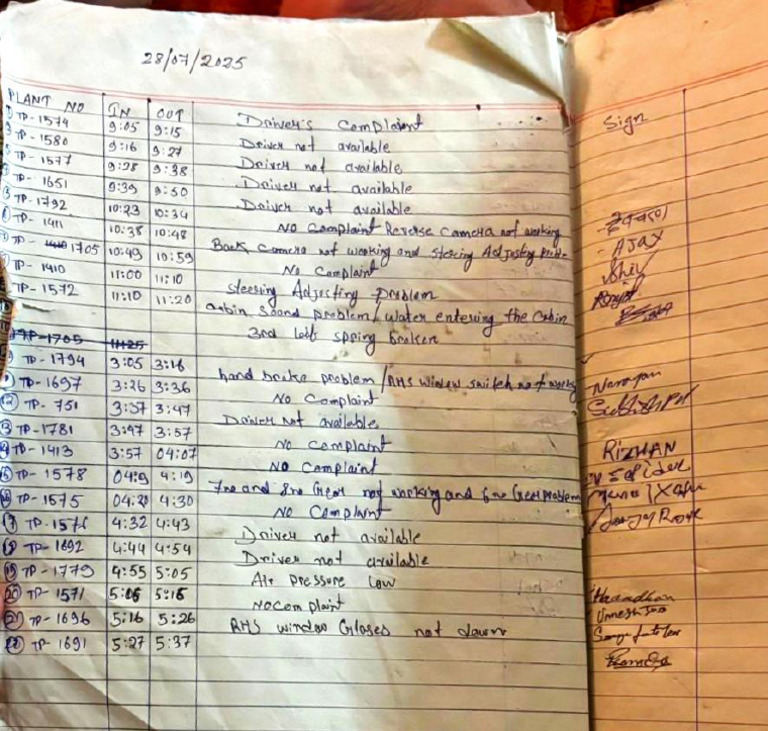 28/07/2025
PLANT NO IN OUT Driver's Complaint Sign
① TP-1574 9:05 9:15 Driver not available
TP-1580 9:16 9:27 Driver not available
TP-1577 9:28 9:38 Driver not available
TP-1651 9:39 9:50 Driver not available
TP-1792 10:23 10:34 No Complaint Reverse camera not working
TP-1411 10:38 10:48 Back camera not working and steering Adjusting AJAY
TP-1705 10:49 10:59 No Complaint Shiv
TP-1410 11:00 11:10 Steering Adjesting problem
TP-1572 11:10 11:20 cabin sound problem/water entering the cabin
3rd left spring broken
TP-1705 11:25
TP-1794 3:05 3:16 hand brake problem/RHS window switch not working Narayan
TP-1697 3:26 3:36 No Complaint
⑫ TP-751 3:37 3:47 Driver Not available
⑬ TP-1781 3:47 3:57 No Complaint RIZWAN
⑭ TP-1413 3:57 04:07 No Complaint
⑮ TP-1578 04:9 4:19 and Gear not working and Gear problem
⑯ TP-1575 04:20 4:30 No Complaint
⑰ TP-1576 4:32 4:43 Driver not available
⑱ TP-1692 4:44 4:54 Driver not available
⑲ TP-1779 4:55 5:05 Air pressure low
⑳ TP-1571 5:05 5:15 No Complaint
㉑ TP-1696 5:16 5:26 RHS window Glases not down
㉒ TP-1691 5:27 5:37